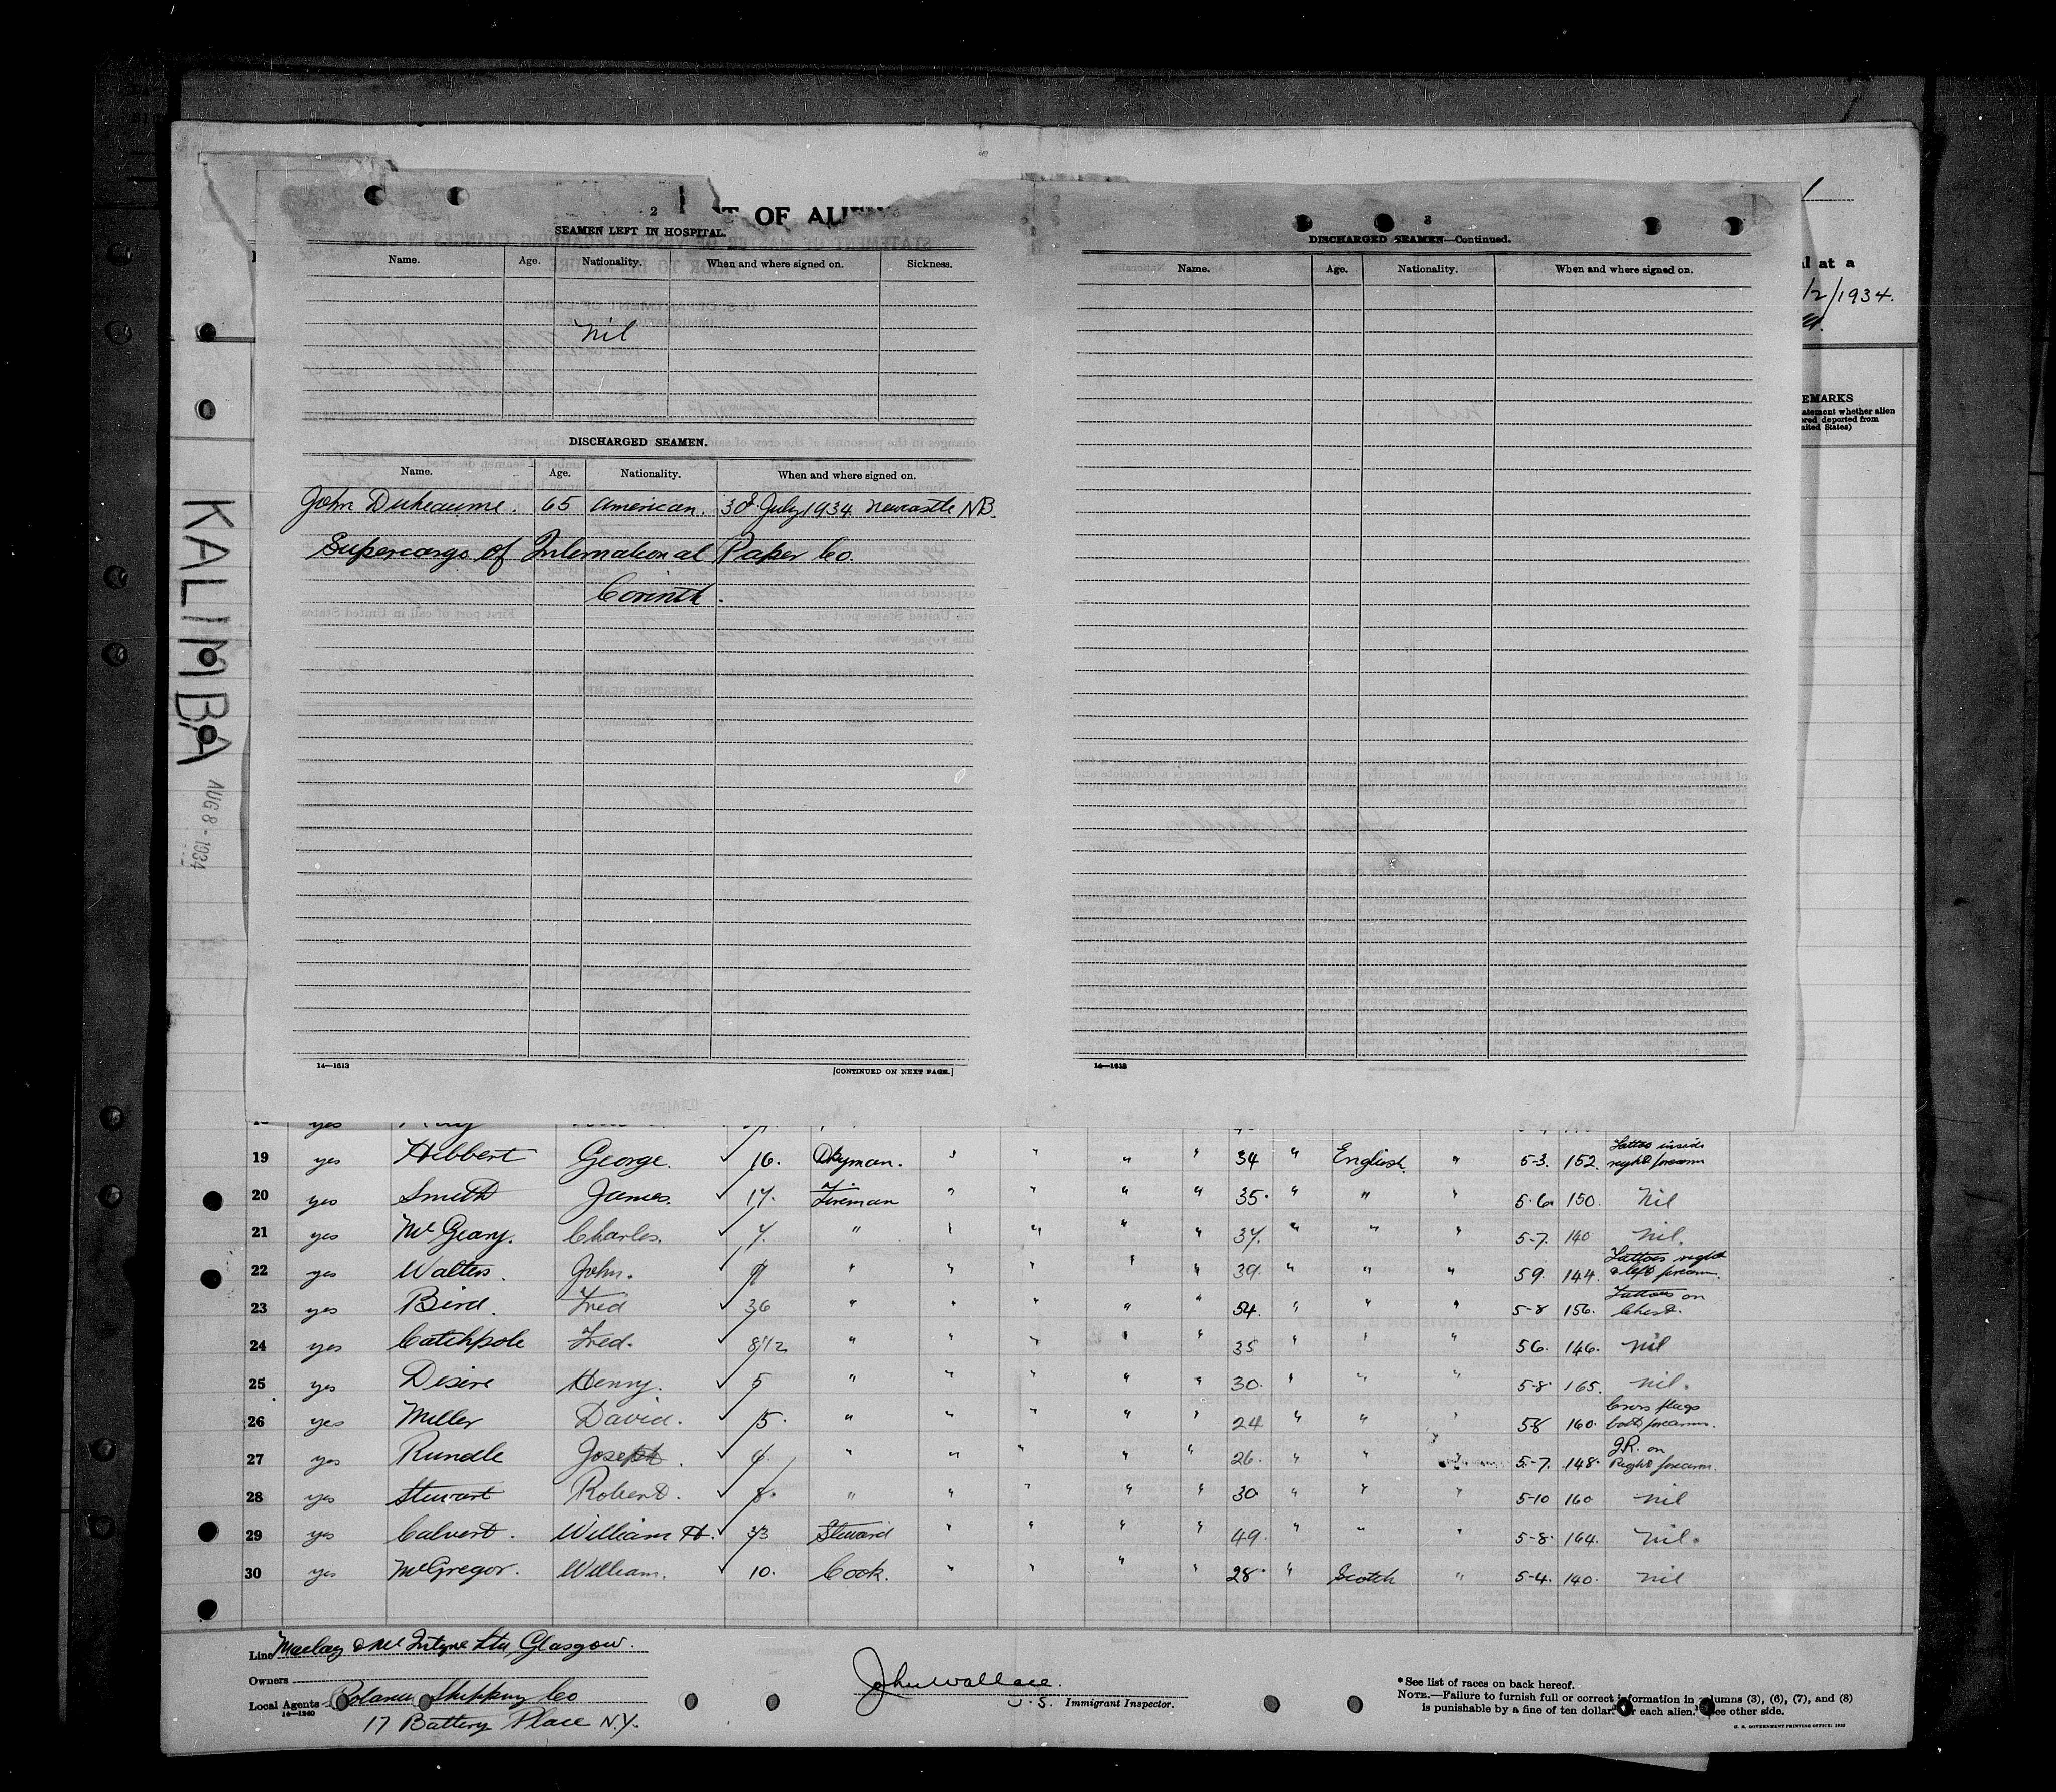 KALIMBA
AUG 8 - 1934
T OF ALIEN
2
SEAMEN LEFT IN HOSPITAL.
Name. Age. Nationality. When and where signed on. Sickness.
Nil
DISCHARGED SEAMEN.
Name. Age. Nationality. When and where signed on.
John Duheaume. 65 American. 3d July 1934 Newcastle NB.
Supercargo of International Paper Co.
Corinth.
14—1613 [CONTINUED ON NEXT PAGE.]
3
DISCHARGED SEAMEN—Continued.
Name. Age. Nationality. When and where signed on.
14—1613
l at a
/2/1934.
EMARKS
atement whether alien
ered deported from
nited States)
19 yes Hibbert George. ✓ 16. Dkyman. " " " " 34 " English. " 5-3. 152. Tattoo inside right forearm
20 yes Smith James. ✓ 17. Fireman " " " " 35. " " " 5.6. 150. Nil
21 yes McGeary. Charles. ✓ 7. " " " " " 37. " " " 5-7. 140 nil.
22 yes Walters. John. ✓ " " " " " 39. " " " 5 9. 144. Tattoos right & left forearm.
23 yes Bird. Fred ✓ 36 " " " " " 54. " " " 5-8 156. Tattoos on Chest.
24 yes Catchpole Fred. ✓ 8 1/2 " " " " " 35 " " " 5 6. 146. nil
25 yes Disire Henry. ✓ 5 " " " " " 30. " " " 5-8. 165. nil.
26 yes Miller David. ✓ 15. " " " " " 24 " " " 5 8 160. Cross flags both forearms.
27 yes Rundle Joseph. ✓ 6. " " " " " 26. " " 5-7. 148. J.R. on Right forearm.
28 yes Stewart Robert. ✓ 8. " " " " " 30 " " " 5-10 160 nil
29 yes Calvert. William H. ✓ 33 Steward " " " " 49. " " " 5-8. 164. nil.
30 yes McGregor. William. ✓ 10. Cook. " " " " 28. " Scotch " 5-4. 140. nil
Line Maclay & McIntyre Ltd, Glasgow.
Owners
Local Agents Shipping Co
14—1240
17 Battery Place N.Y.
John Wallace.
U.S. Immigrant Inspector.
* See list of races on back hereof.
NOTE.—Failure to furnish full or correct information in columns (3), (6), (7), and (8)
is punishable by a fine of ten dollars for each alien. See other side.
U. S. GOVERNMENT PRINTING OFFICE: 1933